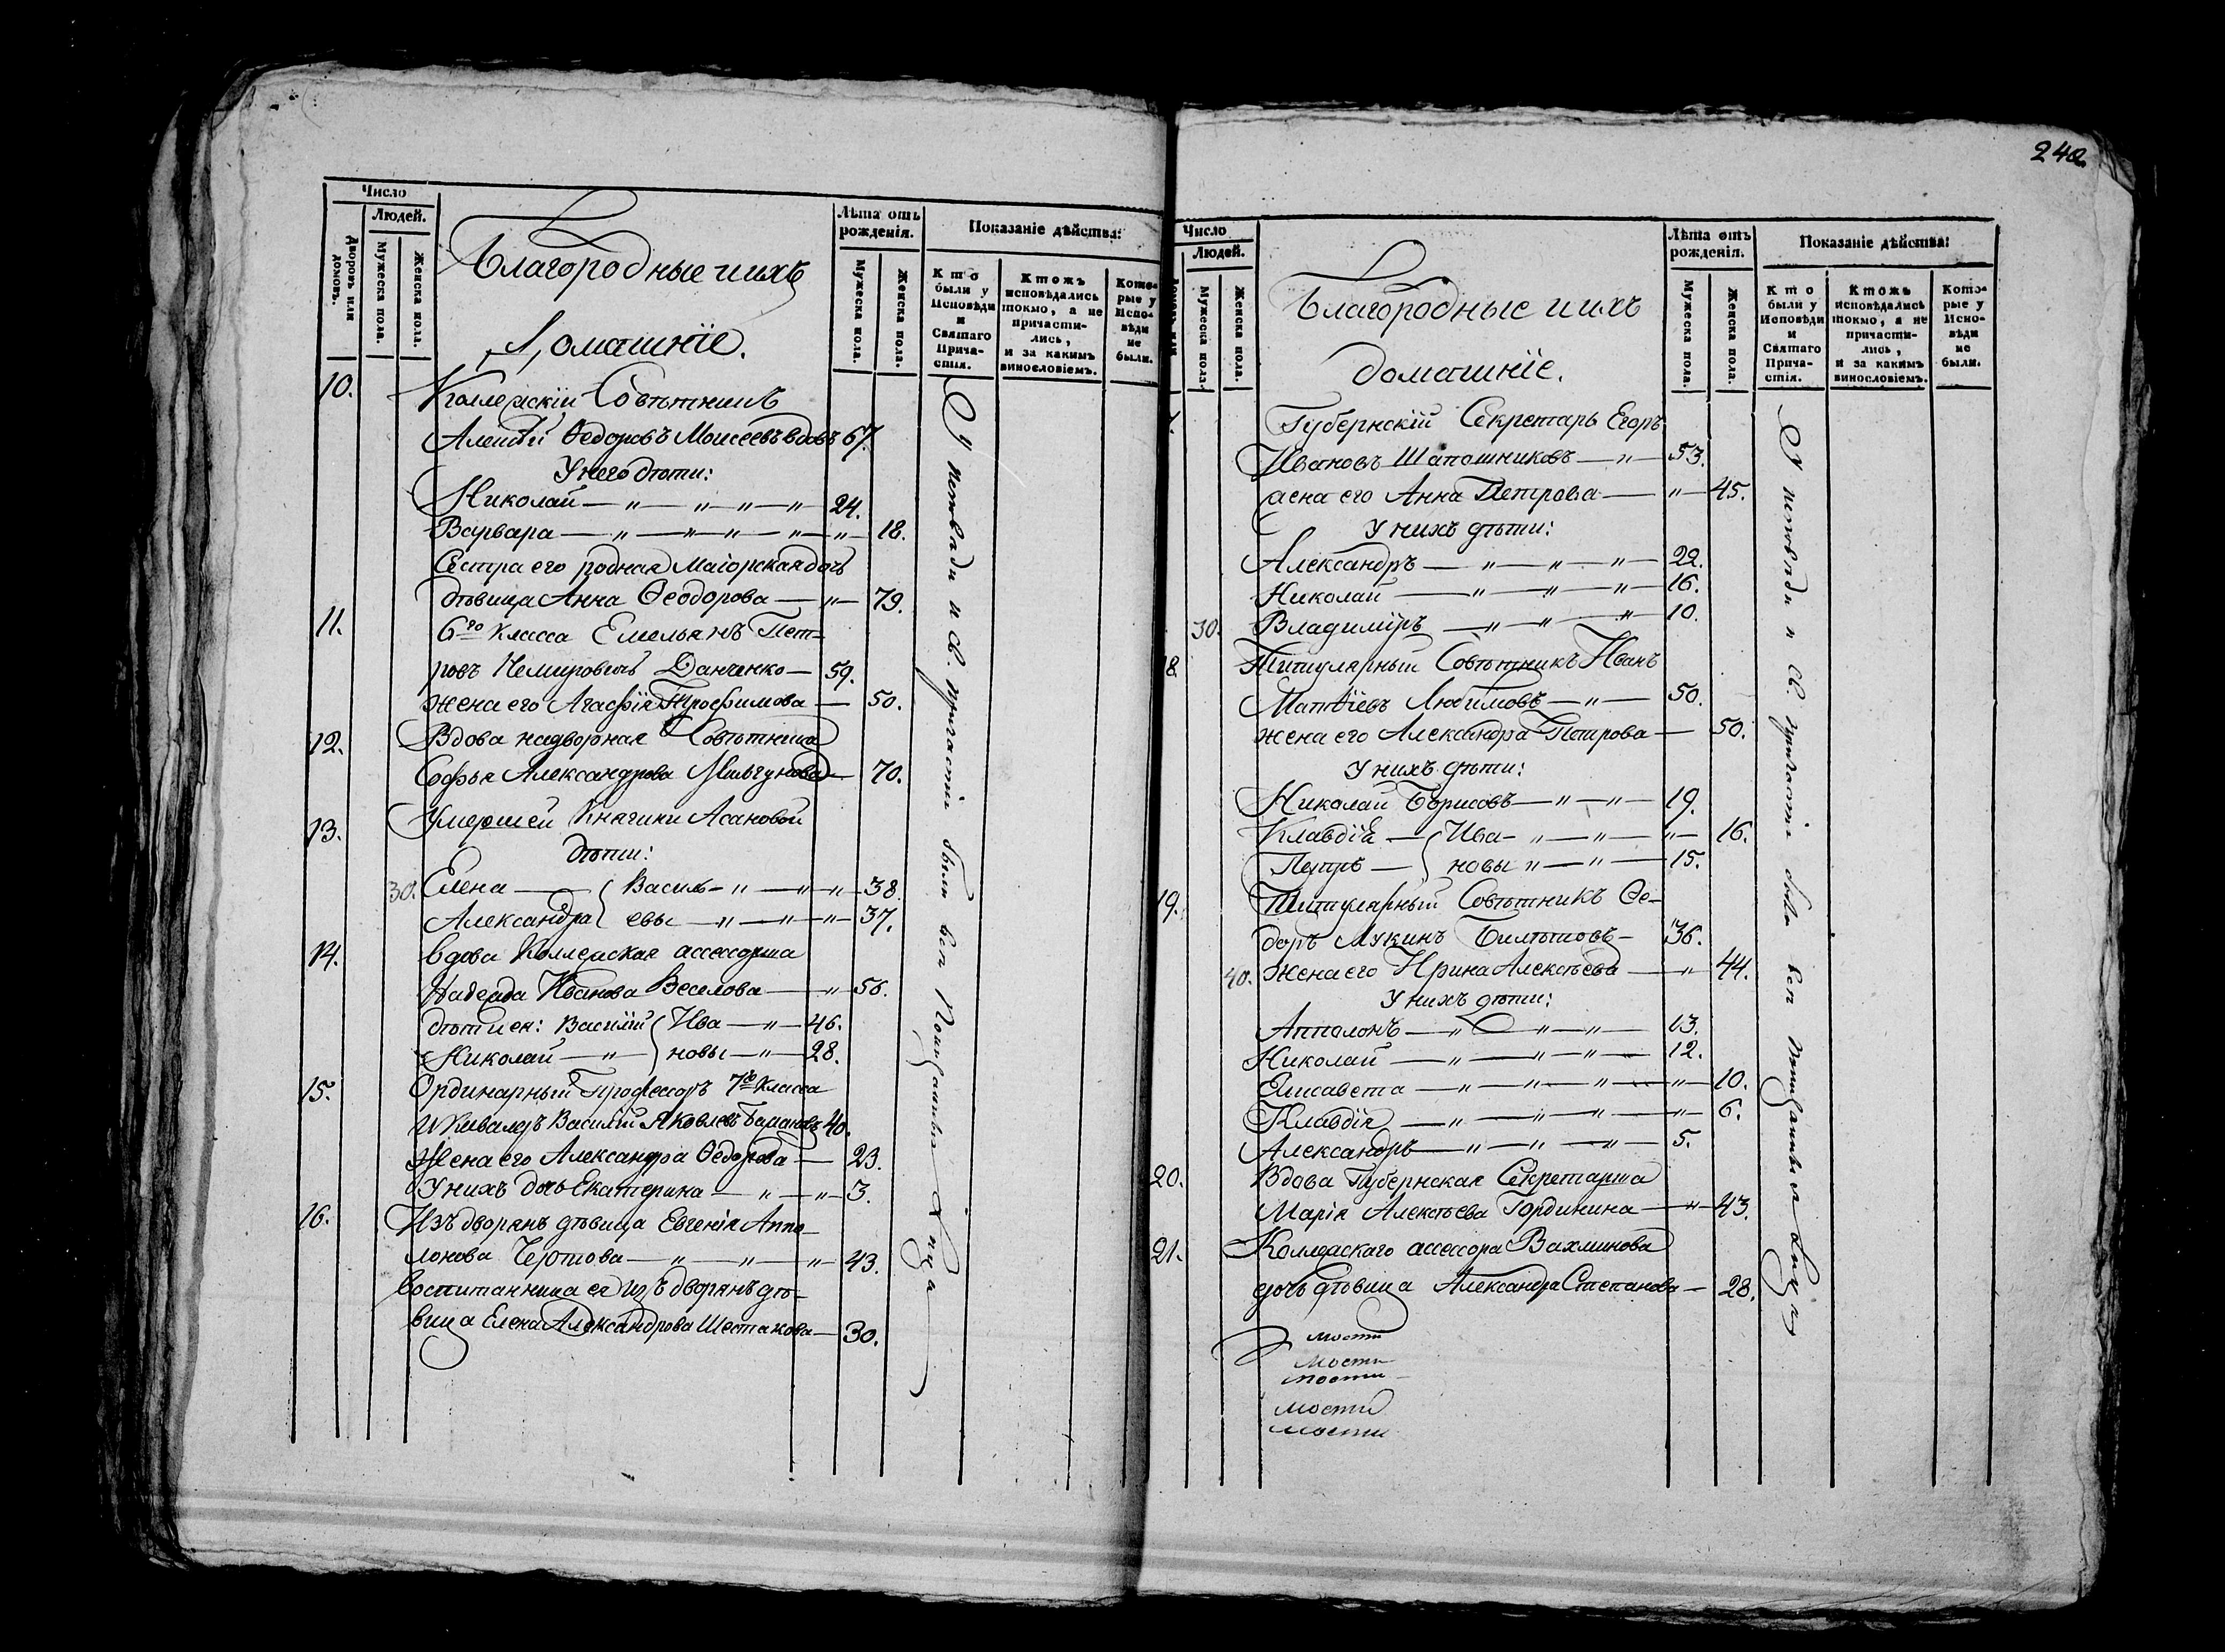 Число
Людей.
Дворовъ или домовъ.
Мужеска пола.
Женска пола.
Благородные и ихъ
Домашніе.
Лѣта отъ рожденія.
Мужеска пола.
Женска пола.
Показаніе дѣйства:
Кто были у Исповѣди и Святаго Причастія.
Ктожъ исповѣдались токмо, а не причастились, и за какимъ винословіемъ.
Которые у Исповѣди не были.
10. Коллежскій Совѣтникъ
Алексѣй Ѳедоровъ Моисеевъ вдовъ 67.
У него дѣти:
Николай — „ — „ — „ — „ 24.
Варвара — „ — „ — „ — „ — „ — 18.
Сестра его родная Маіорская дочь
дѣвица Анна Ѳеодорова — „ — 79.
11. 6го класса Емельянъ Пет-
ровъ Немировичъ Данченко — 59.
жена его Агафія Трофимова — 50.
12. Вдова надворная Совѣтница
Софья Александрова Мильгунова — 70.
13. Умершей Княгини Асановой
дѣти:
30. Елена — { Василь- „ — „ — „ — 38.
Александра { евы — „ — „ — „ — 37.
14. вдова Коллежская ассесорша
Надежда Иванова Веселова — „ 56.
дѣти ея: Василій { Ива — „ — 46.
Николай — „ — } новы — „ — 28.
15. Ординарный Профессоръ 7го Класса
и Кавалеръ Василій Яковлевъ Балановъ 40.
Жена его Александра Ѳедорова — 23.
У нихъ дочь Екатерина — „ — „ — 3.
16. Изъ дворянъ дѣвица Евгенія Аппо-
лонова Чертова — „ — „ — „ 43.
воспитанница ея изъ дворянъ дѣ-
вица Елена Александрова Шестакова — 30.
У исповѣди и св. причастія были вси Помѣщанныя лица
242
Число
Людей.
Мужеска пола.
Женска пола.
Благородные и ихъ
домашніе.
Лѣта отъ рожденія.
Мужеска пола.
Женска пола.
Показаніе дѣйства:
Кто были у Исповѣди и Святаго Причастія.
Ктожъ исповѣдались токмо, а не причастились, и за какимъ винословіемъ.
Которые у Исповѣди не были.
Губернскій Секретарь Егоръ
Ивановъ Шапошниковъ — „ — 53.
жена его Анна Петрова — „ — 45.
У нихъ дѣти:
Александръ — „ — „ — „ — 22.
Николай — „ — „ — „ — 16.
30. Владиміръ — „ — „ — „ 10.
18. Титулярный Совѣтникъ Иванъ
Матвіевъ Любимовъ — „ — 50.
жена его Александра Петрова — 50.
У нихъ дѣти:
Николай Борисовъ — „ — „ — 19.
Клавдія — { Ива- „ — „ — „ — 16.
Петръ — } новы „ — „ — 15.
19. Титулярный Совѣтникъ Ѳе-
доръ Лукинъ — 36.
40. жена его Ирина Алексѣева — „ 44.
У нихъ дѣти:
Апполонъ — „ — „ — „ — 13.
Николай — „ — „ — „ — 12.
Елисавета — „ — „ — „ — „ — 10.
Клавдія — „ — „ — „ — „ — 6.
Александръ — „ — „ — „ — 5.
20. Вдова Губернская Секретарша
Марія Алексѣева Гординина — „ — 43.
21. Коллежскаго ассесора Вахминова
дочь дѣвица Александра Степанова — 28.
У исповѣди и св. причастія были вси помѣщанныя лица
мости
мости
мости
мости
мости